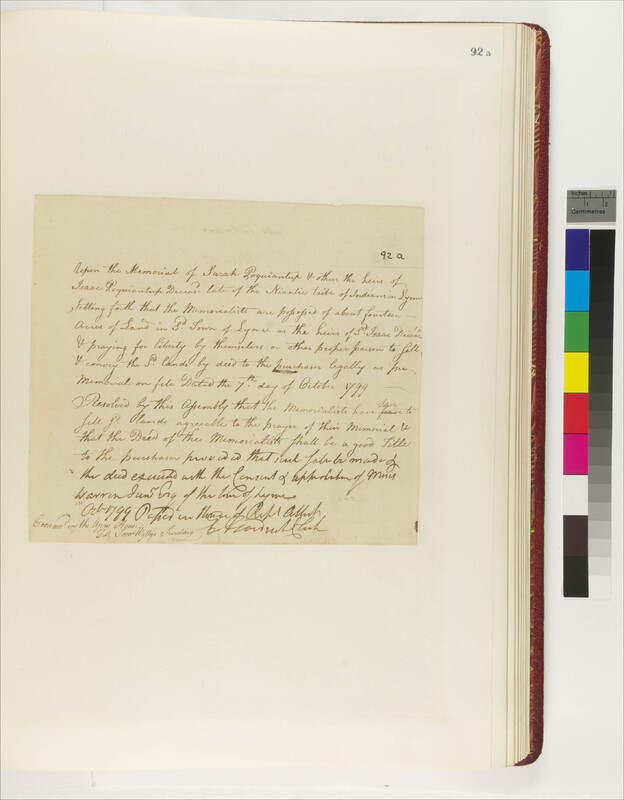 92a
92 a
Upon the Memorial of Sarah Poquiantup & other the heirs of
Isaac Poquiantup Deceasd late of the Niantic tribe of Indians in Lyme
Setting forth that the Memorialists are possessed of about fourteen
Acres of Land in Sd Town of Lyme as the heirs of Sd Isaac Deceasd
& praying for liberty by themselves or other proper person to Sell
& convey the Sd lands by deed to the purchaser legally as per
Memorial on file Dated the 7th day of October 1799
Resolved by this Assembly that the Memorialists have to
Sell Sd lands agreeable to the prayer of this Memorial &
that the Deed of the Memorialists shall be a good Title
to the purchaser provided that such Sale be made &
the deed executed with the Consent & approbation of Moses
Warren Junr Esq of the town of Lyme
Oct 1799 Passed in House of Repts Attest
Clerk
in the Upper House
Test Saml Wyllys Secretary
Inches
1
2
Centimetres